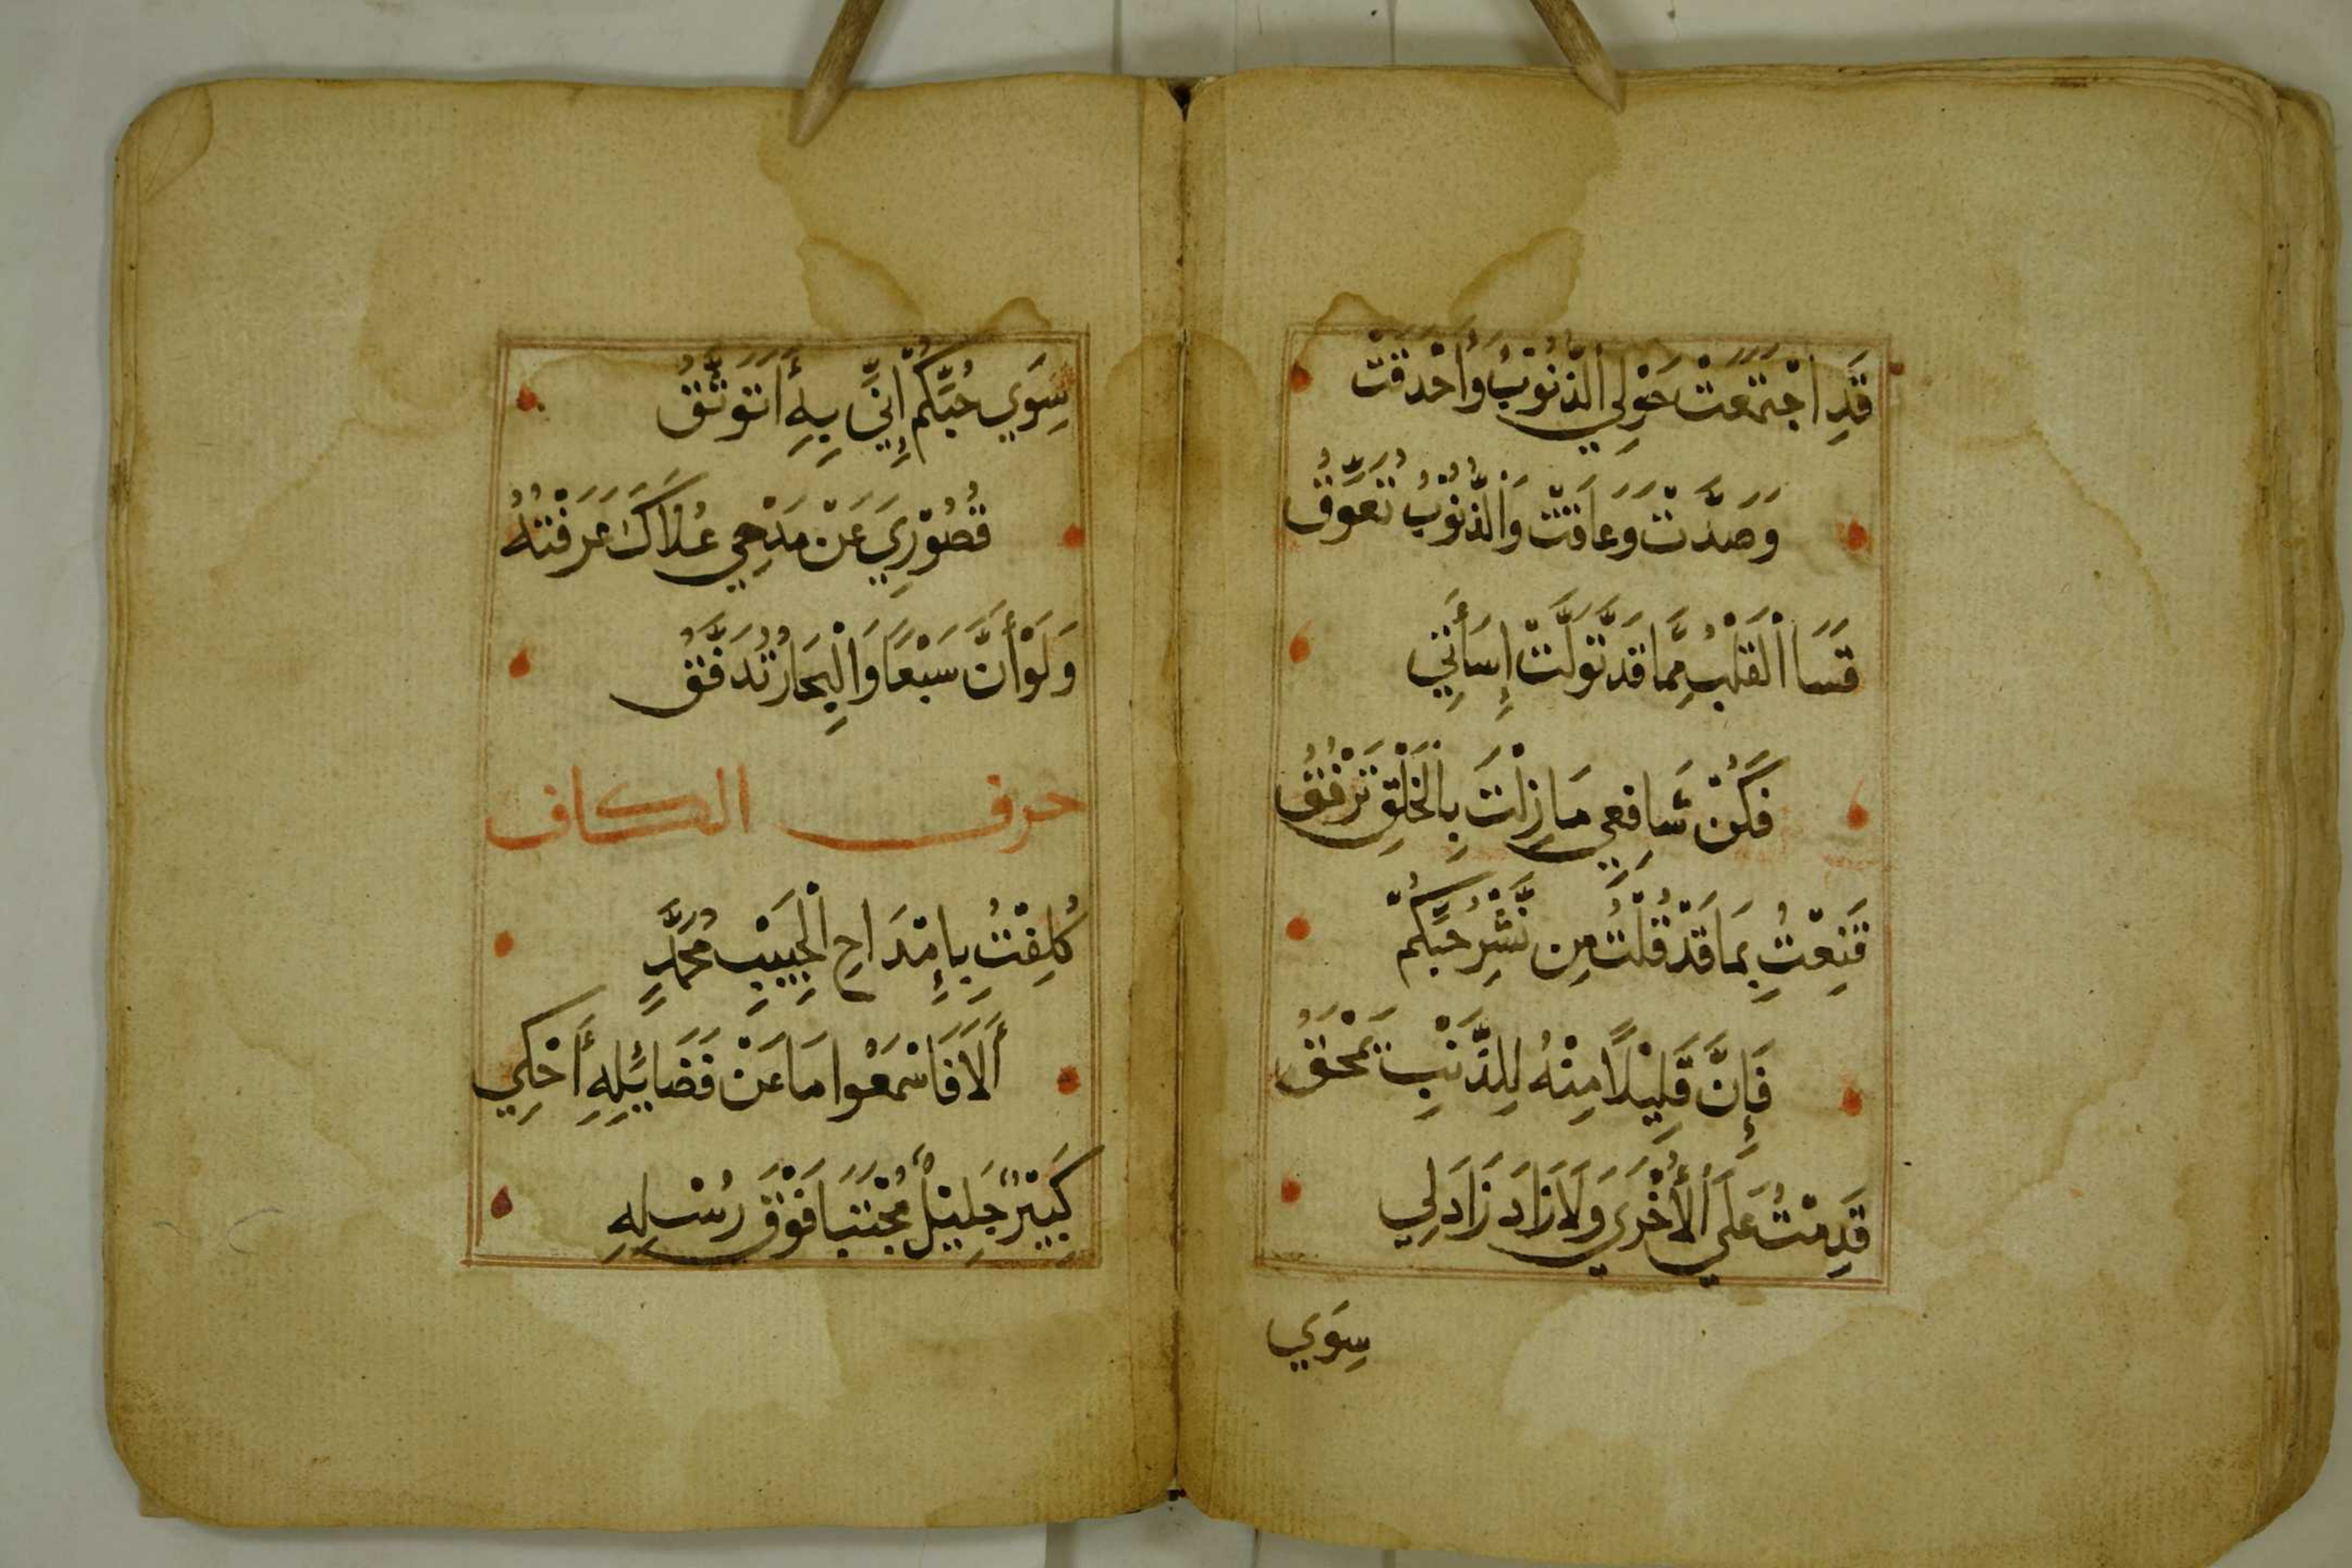 قَدِ اجْتَمَعَتْ حَوْلِي الذُّنُوْبُ وَأَحْدَقَتْ
وَصَدَّتْ وَعَاقَتْ وَالذُّنُوْبُ تُعَوِّقُ
قَسَا الْقَلْبُ مِمَّا قَدْ تَوَلَّتْ إِسَأَتِي
فَكُنْ شَافِعِي مَازِلْتَ بِالْخَلْقِ تَرْفُقُ
قَنِعْتُ بِمَا قَدْ قُلْتُ مِن نَّشْرِ حُبِّكُمْ
فَإِنَّ قَلِيْلًا مِنْهُ لِلذَّنْبِ يَمْحَقُ
قَدِمْتُ عَلَي الْأُخْرَي وَلَازَادَ زَادَ لِي
سِوَي
سِوَي حُبِّكُمْ إِنِّي بِهِ أَتَوَثَّقُ
قُصُوْرِيَ عَنْ مَدْحِي عُلَاكَ عَرَفْتُهُ
وَلَوْ أَنَّ سَبْعًا وَالْبِحَارُ تُدَفَّقُ
حرف الكاف
كُلِفْتُ بِإِمْتِدَاحِ الْحَبِيْبِ مُحَمَّدٍ
أَلَا فَاسْمَعُوا مَا عَنْ فَضَائِلِهِ أَحْكِي
كَبِيْرٌ جَلِيْلٌ مُجْتَبَا فَوْقَ رُسْلِهِ